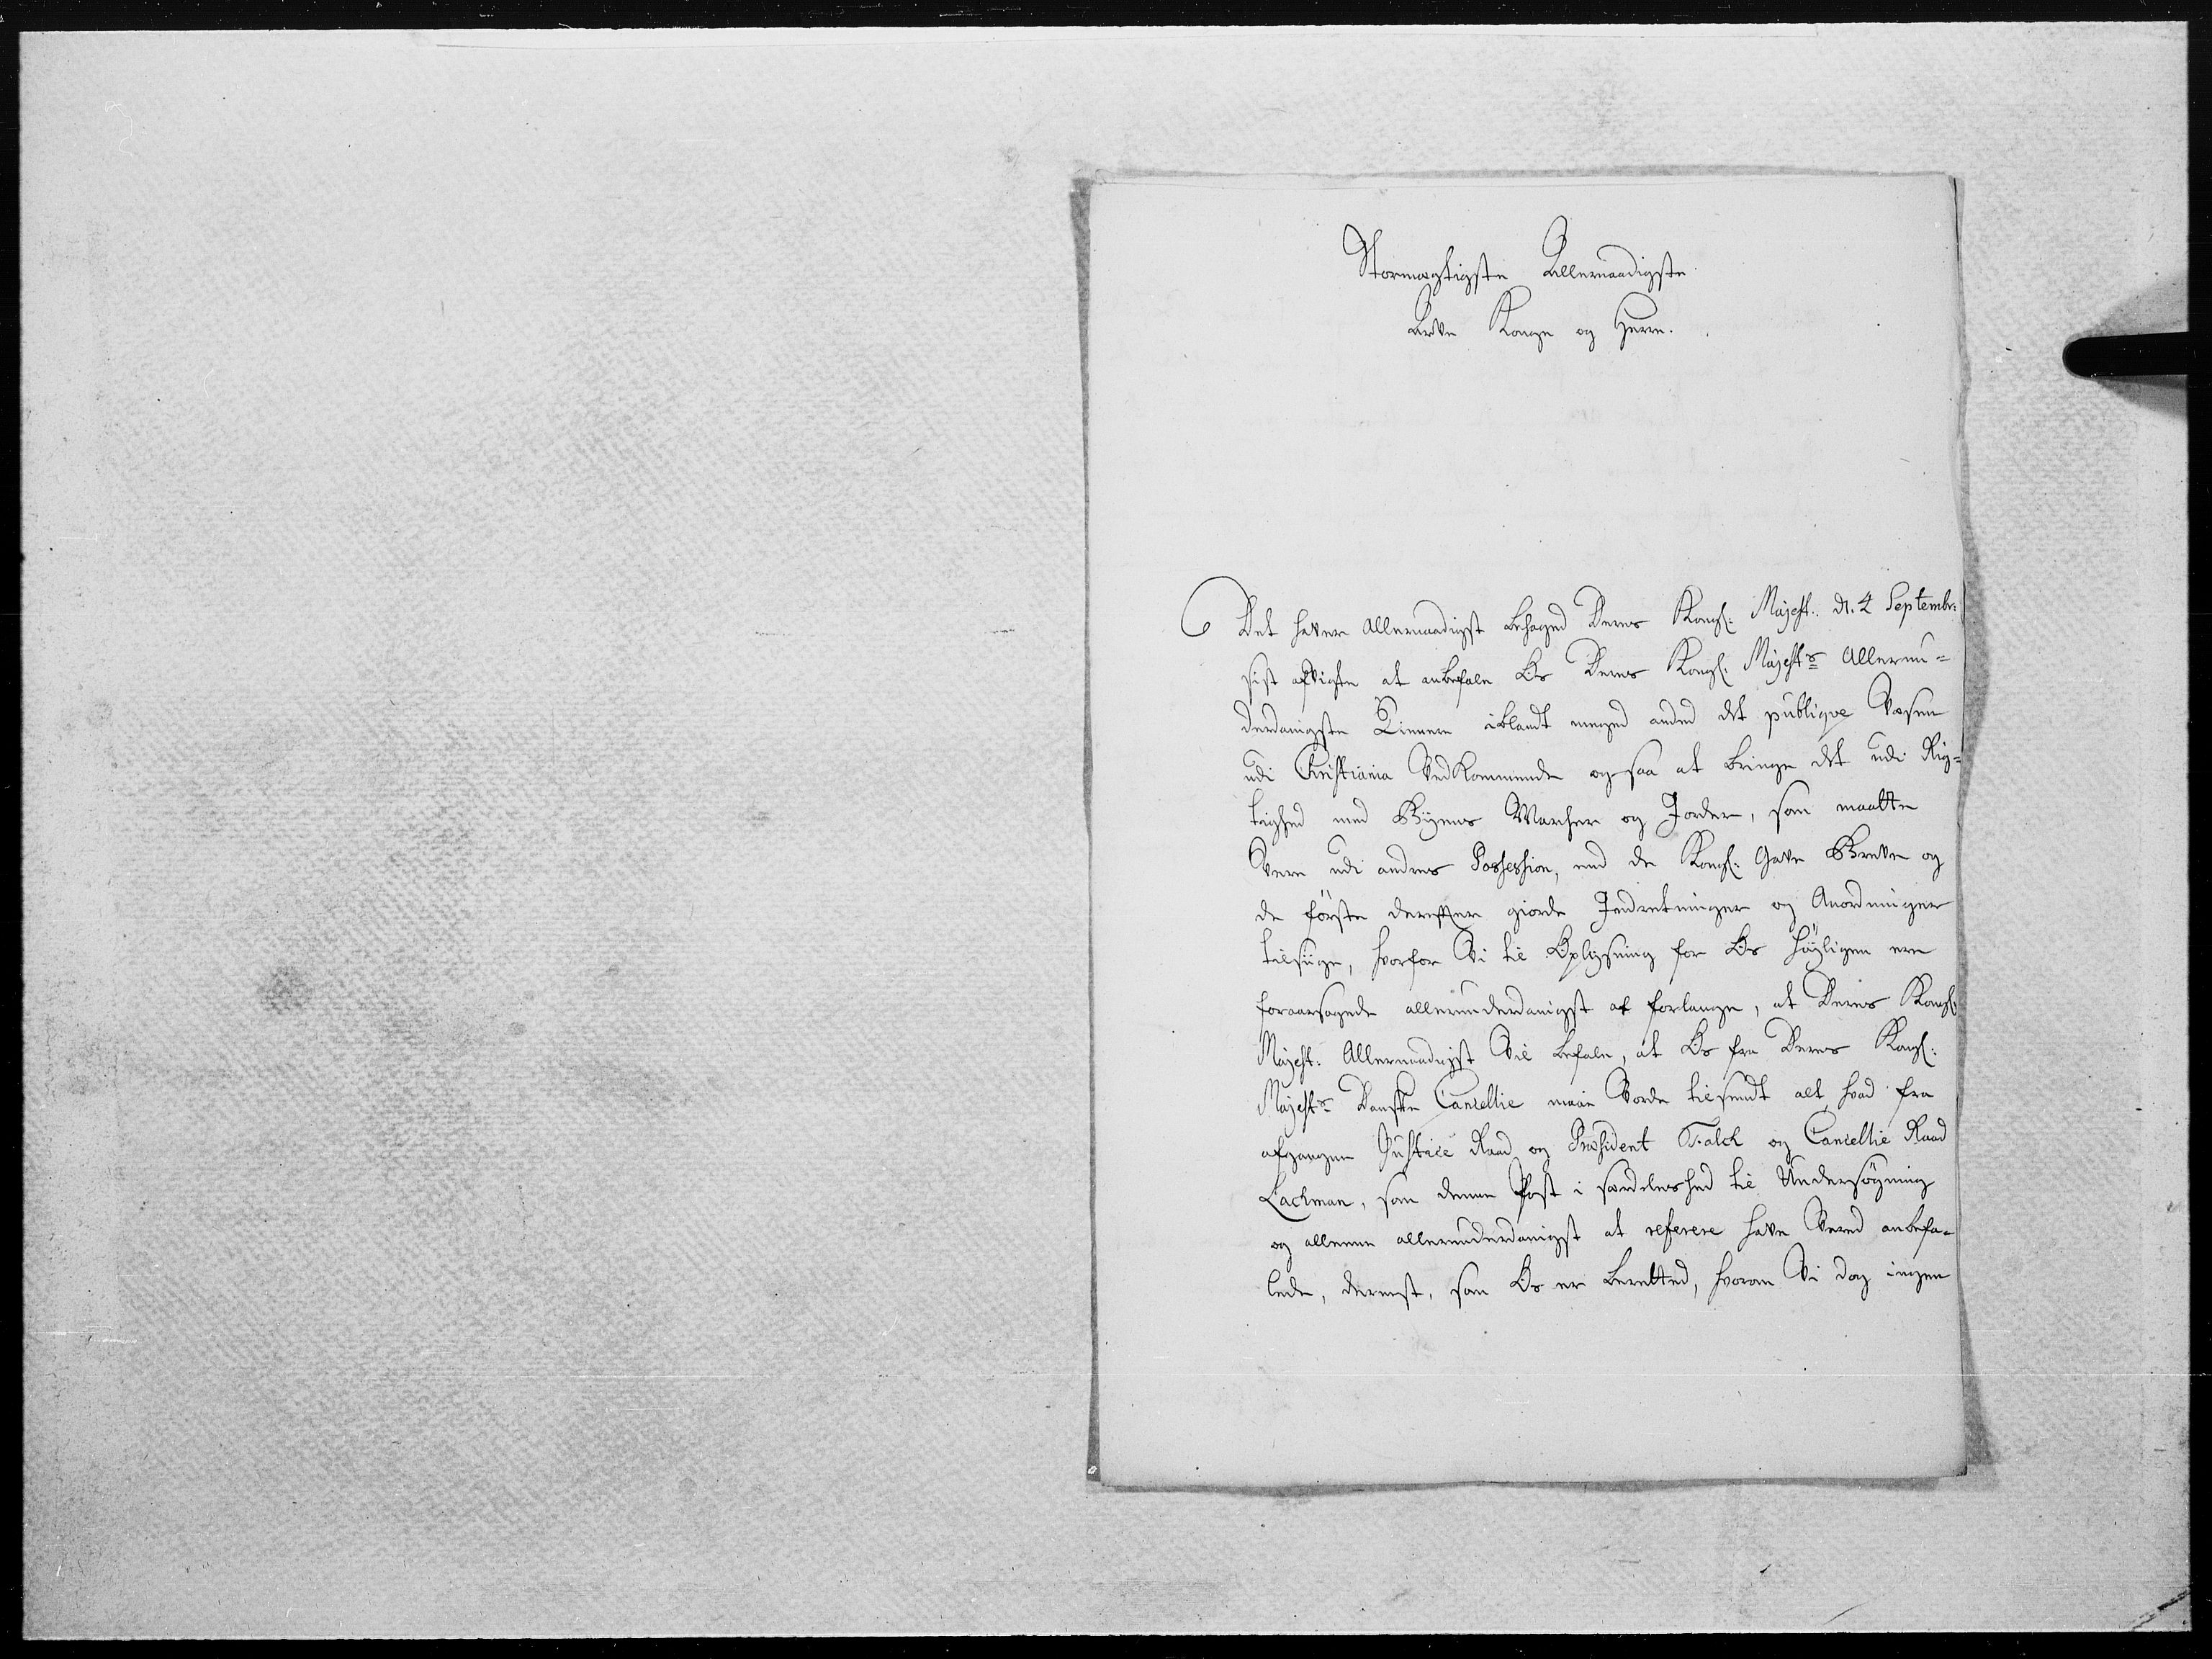 Stormægtigste Allernaadigste
Arve Konge og Herre.
Det haver Allernaadigst behaged Deres Kongl: Majest: d. 4 Septembr:
sist afvigte at anbefale Os Deres Kongl: Majests Allerun=
derdanigste Tienere iblandt meged anded det publiqve Væsen
udi Christiania Vedkommende ogsaa at bringe det udi Rig=
tighed med Byens Marcher og Jorder, som maatte
Være udi andres Possession, end de Kongl: Gave Breve og
de første derefter giorde Indretninger og Anordninger
tilsiige, hvorfor Vi til Oplysning for Os høyligen ere
foraarsagede allerunderdanigst at forlange, at Deres Kongl:
Majest: Allernaadigst Vil befale, at Os fra Deres Kongl:
Majests Danske Cancellie maae Vorde tilsendt alt hvad fra
afgangne Justice Raad og Præsident Falck og Cancellie Raad
Lachman, som denne Post i særdeleshed til Undersøgning
og alleene allerunderdanigst at referere have Vered anbefa=
lede, dernest, som Os er berettet, hvorom Vi dog ingen